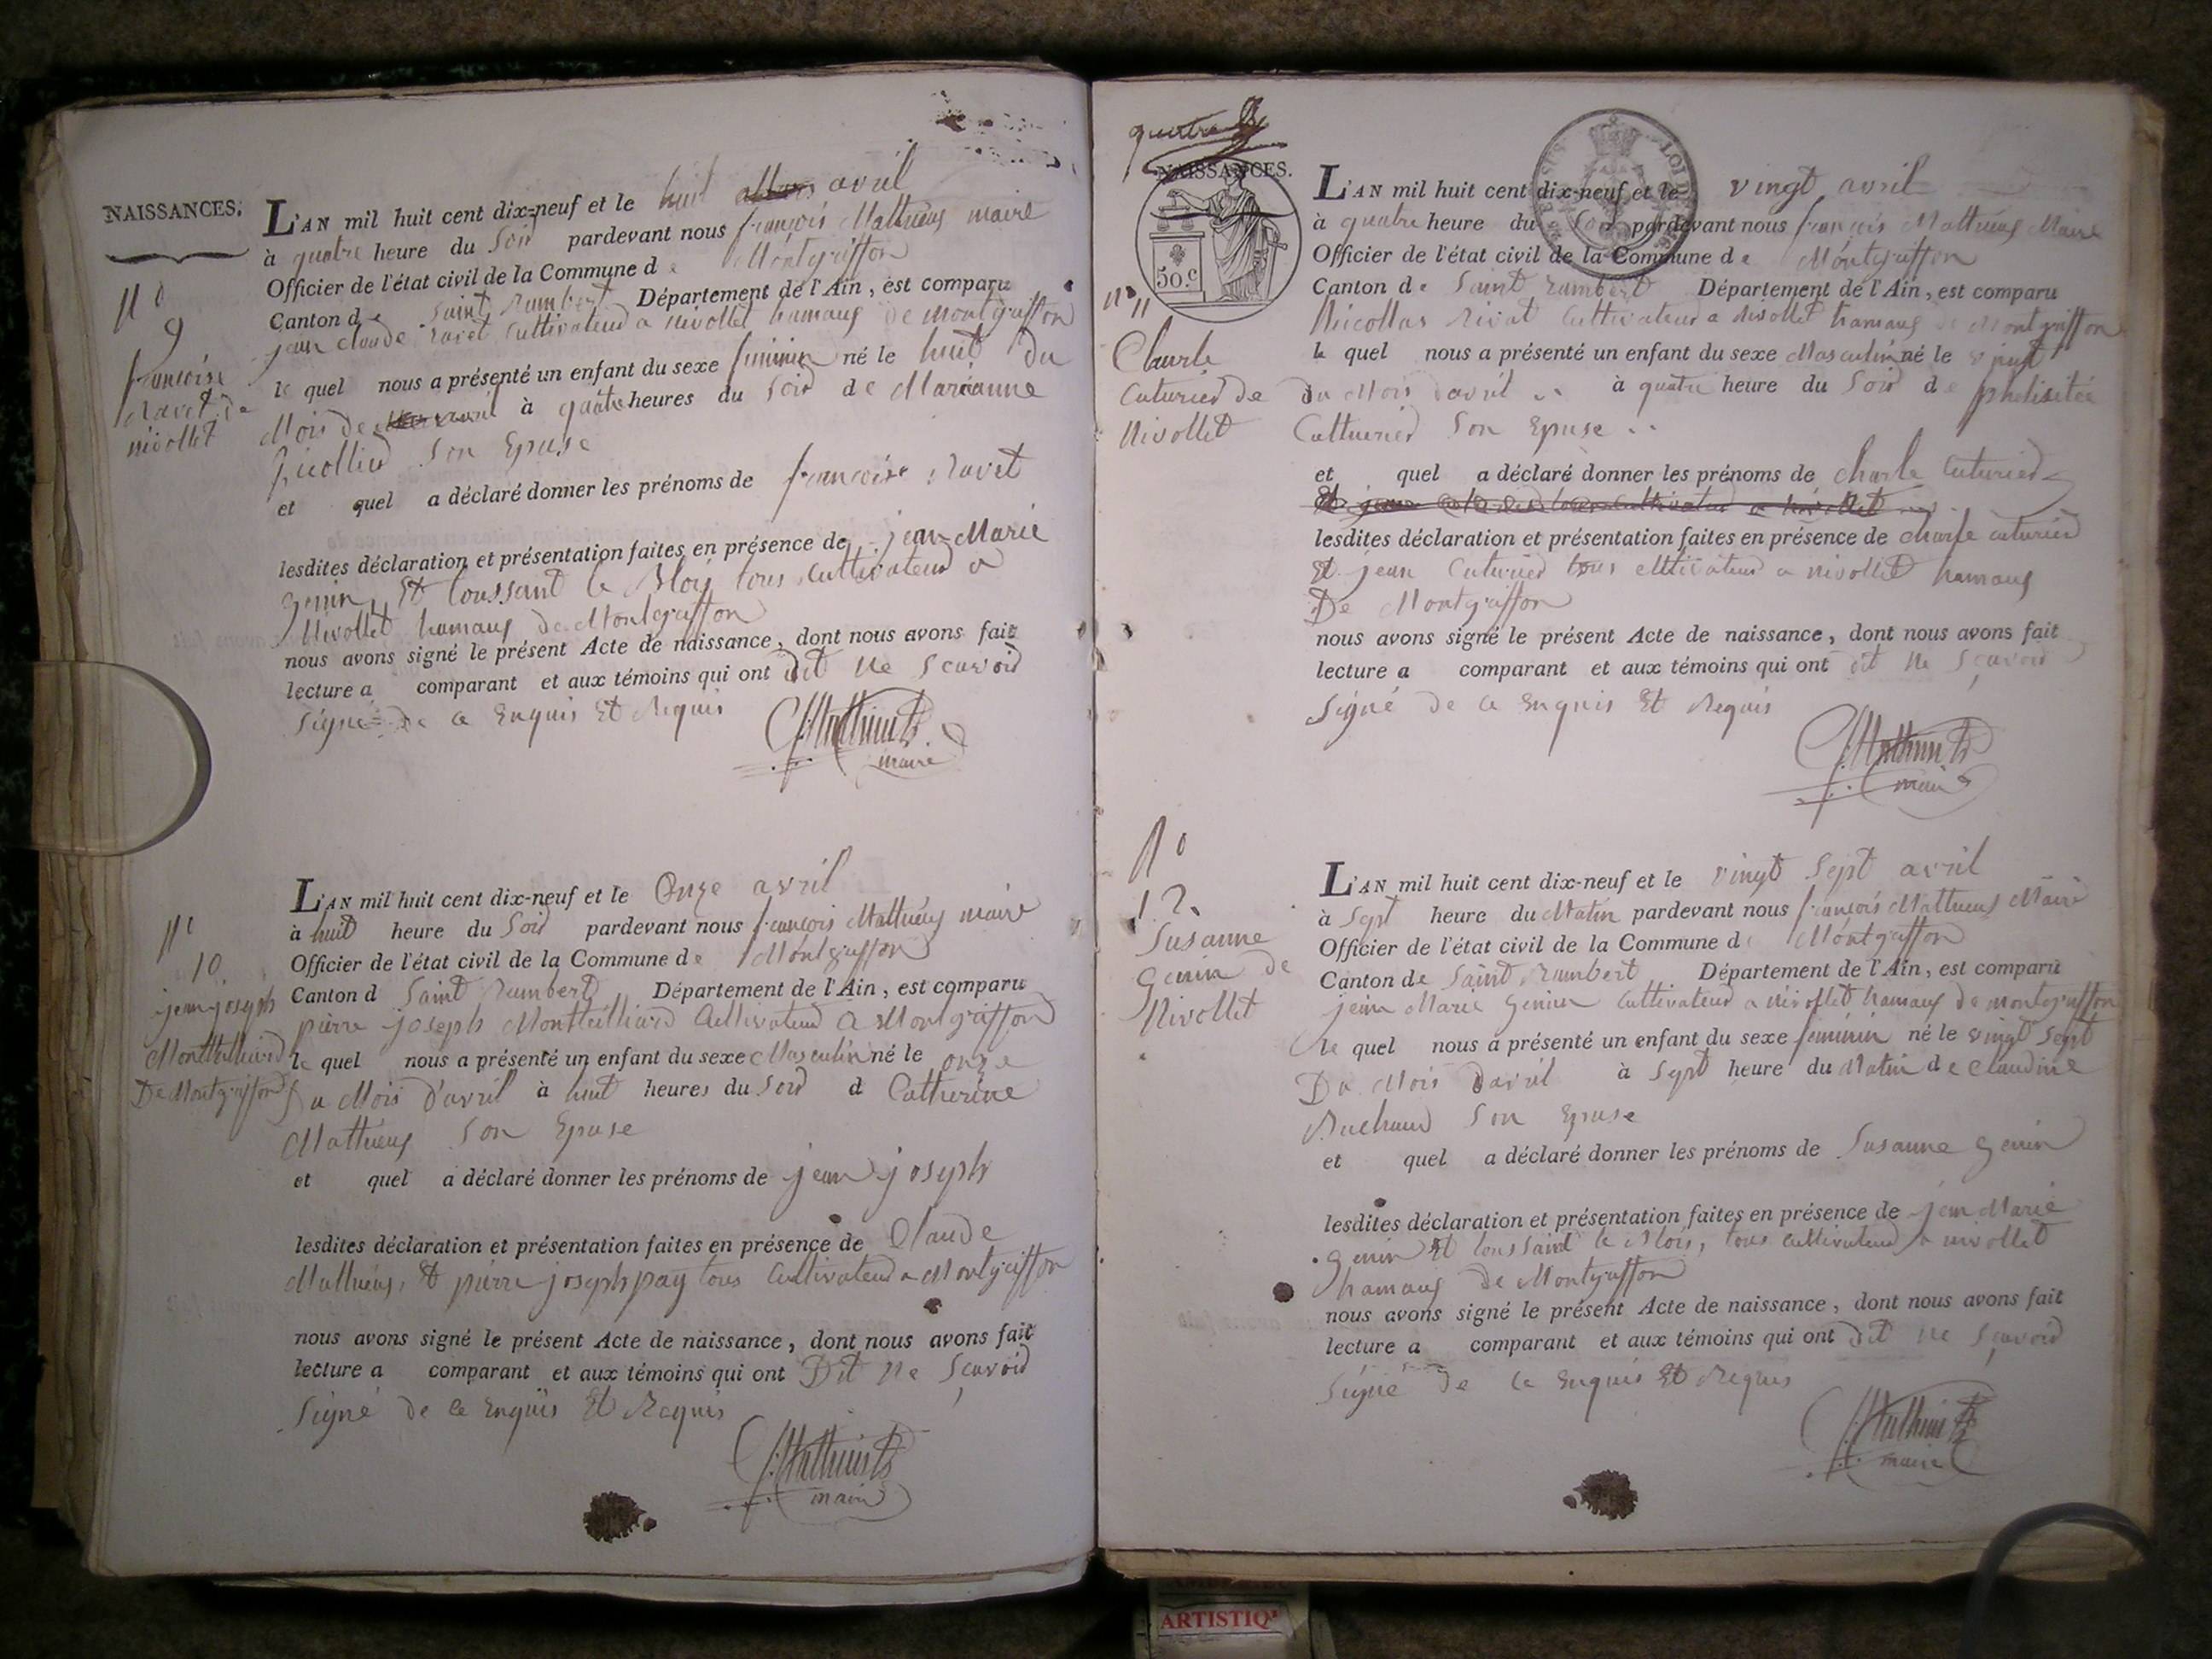 NAISSANCES.
N° 9
françoise
Ravet de
nivollet
L'AN mil huit cent dix-neuf et le huit avril
à quatre heure du Soir pardevant nous françois Mathieus maire
Officier de l'état civil de la Commune de Montgriffon
Canton de Saint Rambert Département de l'Ain, est comparu
jean claude ravet Cultivateur a nivollet hamaus de montgriffon
le quel nous a présenté un enfant du sexe feminin né le huit du
Mois de avril à quatre heures du Soir de Marianne
son Epuse
et quel a déclaré donner les prénoms de françoise Ravet
lesdites déclaration et présentation faites en présence de jean Marie
genin Et toussant le Blois tous Cultivateur a
Nivollet hamaus de Montgriffon
nous avons signé le présent Acte de naissance, dont nous avons fait
lecture a comparant et aux témoins qui ont dit ne Scavoir
Signé de ce Enquis Et Requis
maire
N° 10
jean joseph
De Montgriffon
L'AN mil huit cent dix-neuf et le Onze avril
à huit heure du Soir pardevant nous françois Mathieus maire
Officier de l'état civil de la Commune de Montgriffon
Canton d Saint Rambert Département de l'Ain, est comparu
pierre joseph Cultivateur a Montgriffon
le quel nous a présenté un enfant du sexe Masculin né le onze
Du Mois d'avril à huit heures du Soir d Catherine
Mathieus Son Epuse
et quel a déclaré donner les prénoms de jean joseph
lesdites déclaration et présentation faites en présence de Claude
Mathieus, Et pierre joseph pay tous Cultivateur a Montgriffon
nous avons signé le présent Acte de naissance, dont nous avons fait
lecture a comparant et aux témoins qui ont Dit Ne Scavoir
Signé de ce Enquis Et Requis
maire
NAISSANCES.
50.c
N° 11
Cuturier de
Nivollet
L'AN mil huit cent dix-neuf et le vingt avril
à quatre heure du Soir pardevant nous françois Mathieus Maire
Officier de l'état civil de la Commune de Montgriffon
Canton de Saint rambert Département de l'Ain, est comparu
Nicollas Cultivateur a nivollet hamaus de Montgriffon
le quel nous a présenté un enfant du sexe Masculin né le vingt
Du Mois davril à quatre heure du Soir de phelisitée
Cutturier Son Epuse
et quel a déclaré donner les prénoms de charle Cuturier
lesdites déclaration et présentation faites en présence de charle cuturier
Et jean Cuturier tous cultivateur a nivollet hamaus
De Montgriffon
nous avons signé le présent Acte de naissance, dont nous avons fait
lecture a comparant et aux témoins qui ont dit Ne Scavoir
Signé de ce Enquis Et Requis
maire
N° 12
Susanne
genin de
Nivollet
L'AN mil huit cent dix-neuf et le vingt Sept avril
à Sept heure du Matin pardevant nous françois Mathieus Maire
Officier de l'état civil de la Commune d Montgriffon
Canton de Saint Rambert Département de l'Ain, est comparu
jean Marie genin Cultivateur a nivollet hamaus de montgriffon
le quel nous a présenté un enfant du sexe feminin né le vingt Sept
Du Mois davril à Sept heure du Matin de Claudine
Son Epuse
et quel a déclaré donner les prénoms de Susanne genin
lesdites déclaration et présentation faites en présence de jean Marie
genin Et toussaint le Blois, tous cultivateur a nivollet
hamaus de Montgriffon
nous avons signé le présent Acte de naissance, dont nous avons fait
lecture a comparant et aux témoins qui ont dit ne Scavoir
Signé de ce Enquis Et Requis
maire
ARTISTIQ